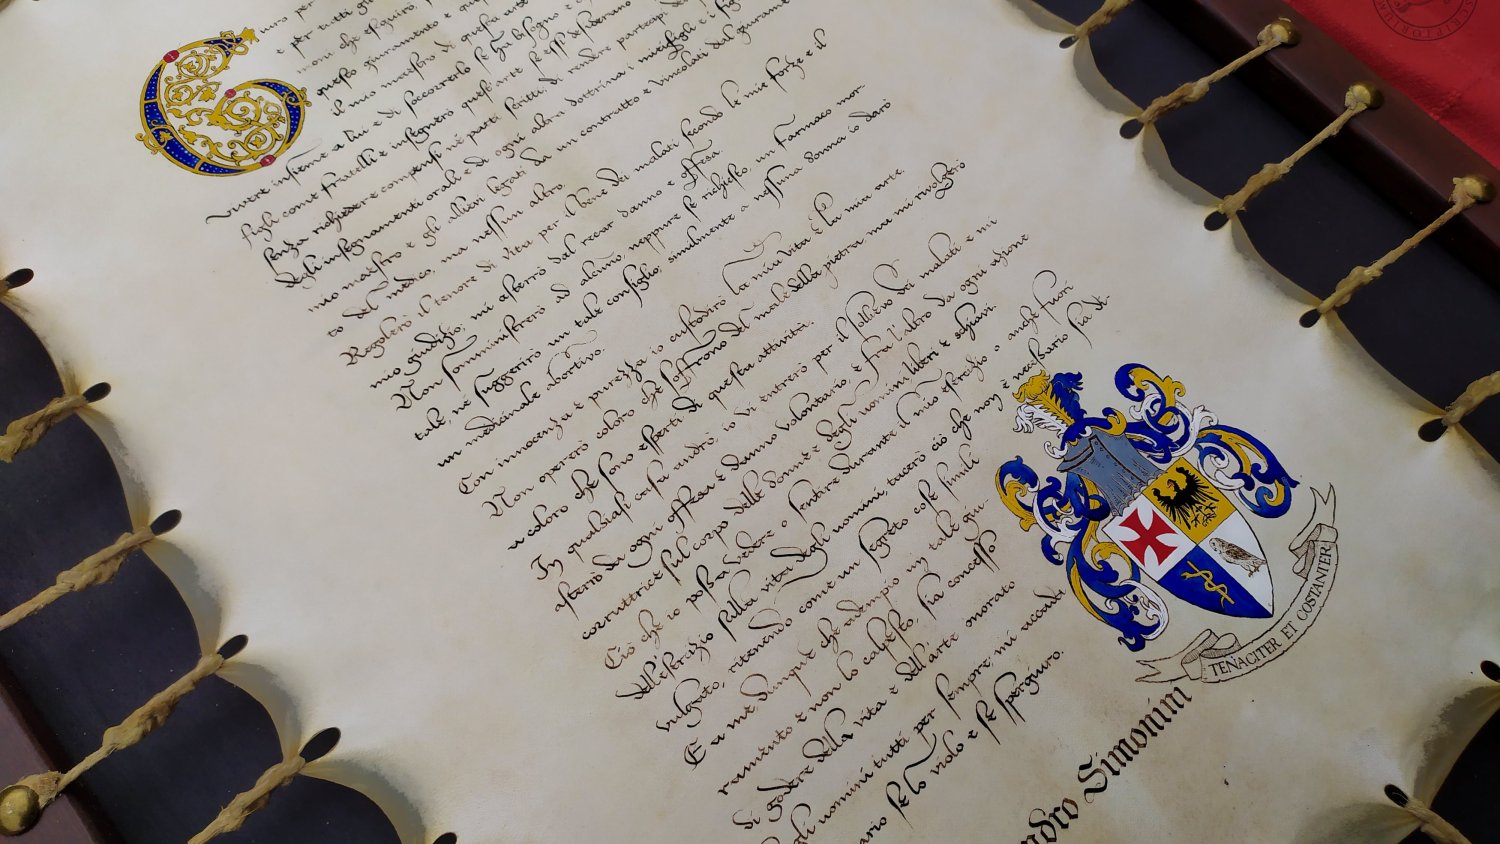 giuro per
e per tutti gli
moni che eseguirò,
questo giuramento e que
il mio maestro di questa arte
vivere insieme a lui e di soccorrerlo se ha bisogno e
figli come fratelli e insegnerò quest'arte se essi desiderano
senza richiedere compensi né patti scritti; di rendere partecipi dei
degli insegnamenti orali e di ogni altra dottrina i miei figli e i figli
mio maestro e gli allievi legati da un contratto e vincolati dal giuramen
to del medico, ma nessun altro.
Regolerò il tenore di vita per il bene dei malati secondo le mie forze e il
mio giudizio; mi asterrò dal recar danno e offesa.
Non somministrerò ad alcuno, neppure se richiesto, un farmaco mor-
tale, né suggerirò un tale consiglio; similmente a nessuna donna io darò
un medicinale abortivo.
Con innocenza e purezza io custodirò la mia vita e la mia arte.
Non opererò coloro che soffrono del male della pietra, ma mi rivolgerò
a coloro che sono esperti di questa attività.
In qualsiasi casa andrò, io vi entrerò per il sollievo dei malati, e mi
asterrò da ogni offesa e danno volontario, e fra l'altro da ogni azione
corruttrice sul corpo delle donne e degli uomini, liberi e schiavi.
Ciò che io possa vedere o sentire durante il mio esercizio o anche fuori
dell'esercizio sulla vita degli uomini, tacerò ciò che non è necessario sia di-
vulgato, ritenendo come un segreto cose simili.
E a me, dunque, che adempio un tale giu-
ramento e non lo calpesto, sia concesso
di godere della vita e dell'arte, onorato
gli uomini tutti per sempre; mi accada
ario se lo violo e se spergiuro.
TENACITER ET COSTANTER
ndro Simonini